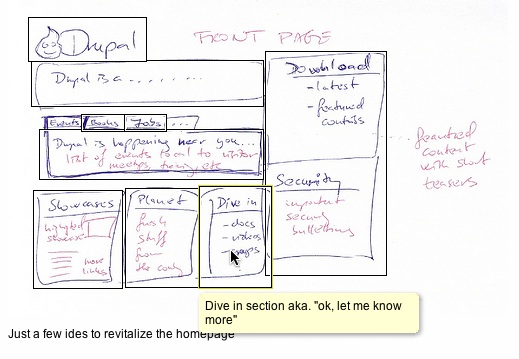 Drupal
FRONT PAGE
Drupal is a - - - - . . .
Download
- latest
- featured
contribs
Events Books Jobs ...
Drupal is happening near you...
list of events local to visitor
meetups, trainings etc
featured
content
with short
teasers
Security
important
security
bulletins
Showcases
highlighted
showcase
more
links
Planet
fresh
stuff
from
the
Dive in
- docs
- videos
- pages
Dive in section aka. "ok, let me know
more"
Just a few ides to revitalize the homepage